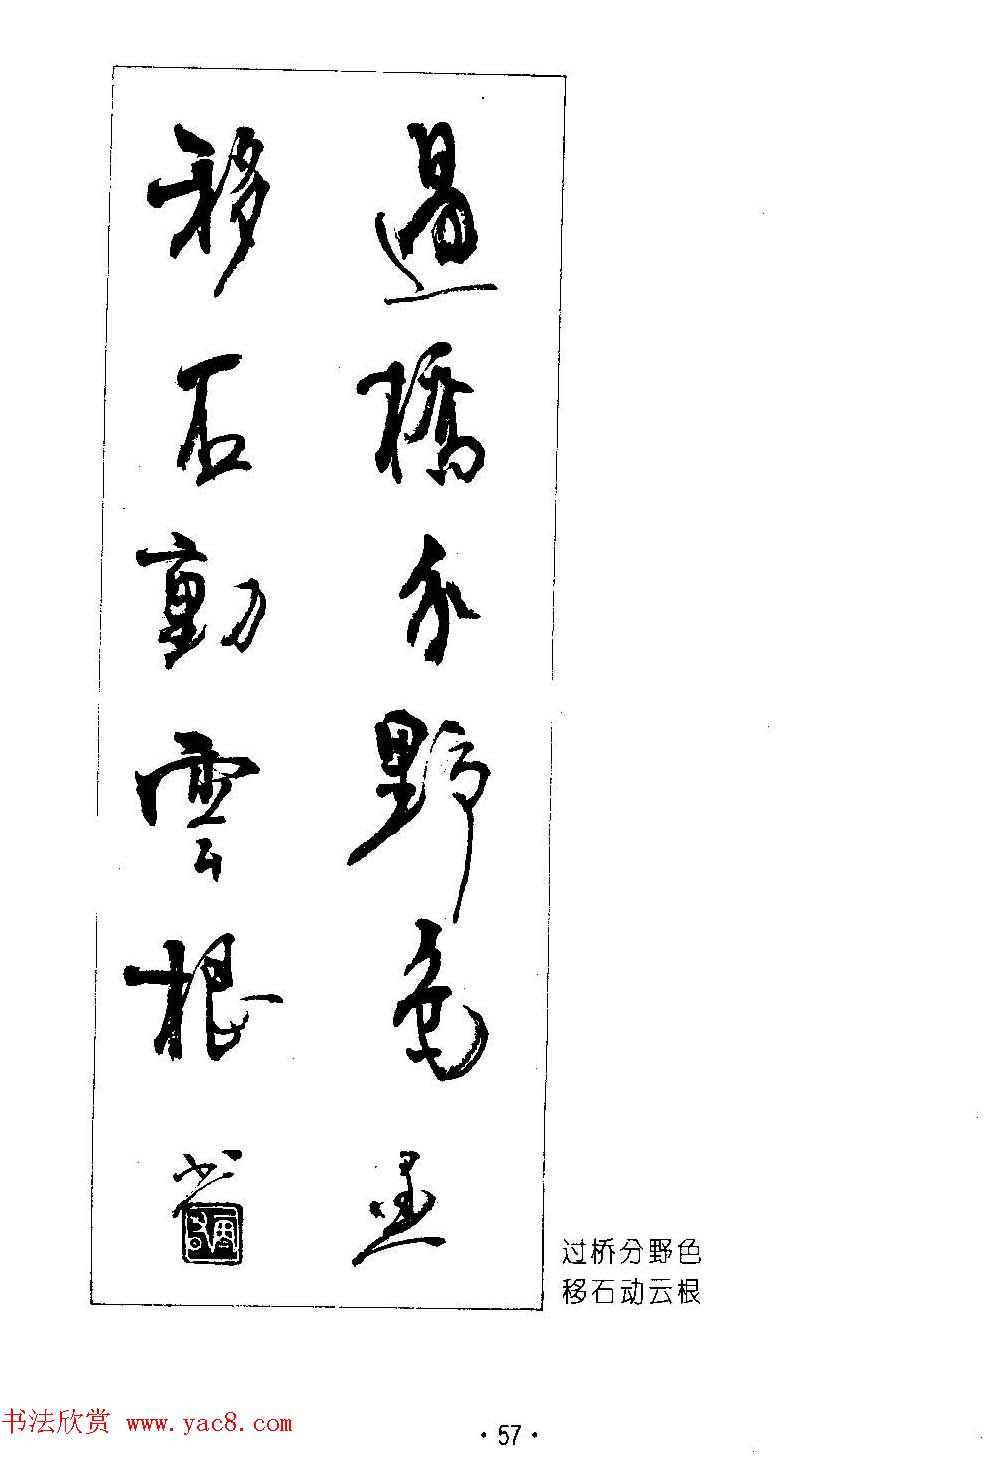 過橋分野色
移石動雲根
过桥分野色
移石动云根
书法欣赏 www.yac8.com
·57·